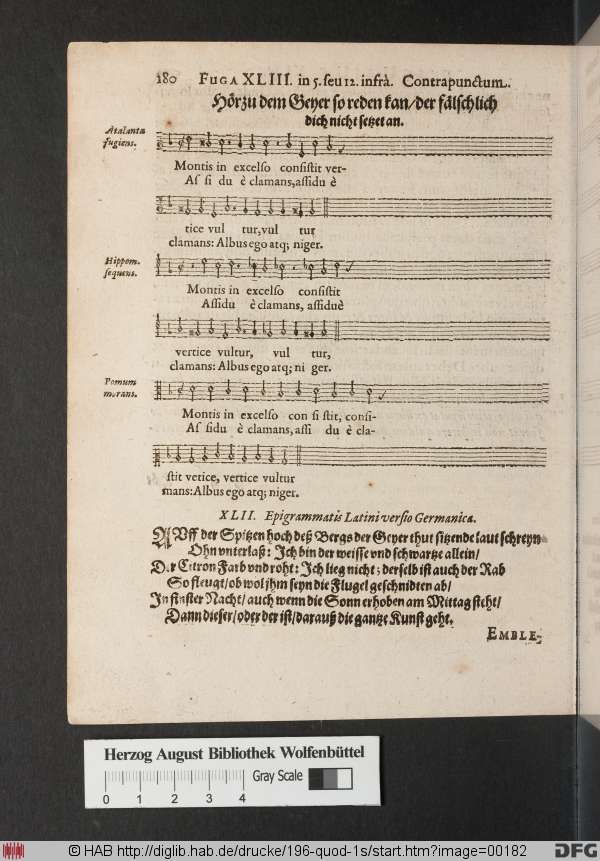 180 FUGA XLIII. in 5. seu 12. infrà. Contrapunctum.
Hör zu dem Geyer so reden kan/der fälschlich
dich nicht setzet an.
Atalanta
fugiens.
Montis in excelso consistit ver-
As si du è clamans,assidu è
tice vul tur,vul tur
clamans: Albus ego atq; niger.
Hippom.
sequens.
Montis in excelso consistit
Assidu è clamans, assiduè
vertice vultur, vul tur,
clamans: Albus ego atq; ni ger.
Pomum
morans.
Montis in excelso con si stit, consi-
As sidu è clamans, assi du è cla-
stit vetice, vertice vultur
mans:Albus ego atq; niger.
XLII. Epigrammatis Latini versio Germanica.
AUff der Spitzen hoch deß Bergs der Geyer thut sitzende laut schreyn
Ohn unterlaß: Ich bin der weisse vnd schwartze allein/
Der Citron Farb vnd roht: Ich lieg nicht; derselb ist auch der Rab
So fleugt/ ob wol jhm seyn die Flugel geschnidten ab/
In finster Nacht/ auch wenn die Sonn erhoben am Mittag steht/
Dann dieser/ oder der ist/ darauß die gantze Kunst geht.
EMBLE-
Herzog August Bibliothek Wolfenbüttel
Gray Scale
0 1 2 3 4
© HAB http://diglib.hab.de/drucke/196-quod-1s/start.htm?image=00182
DFG